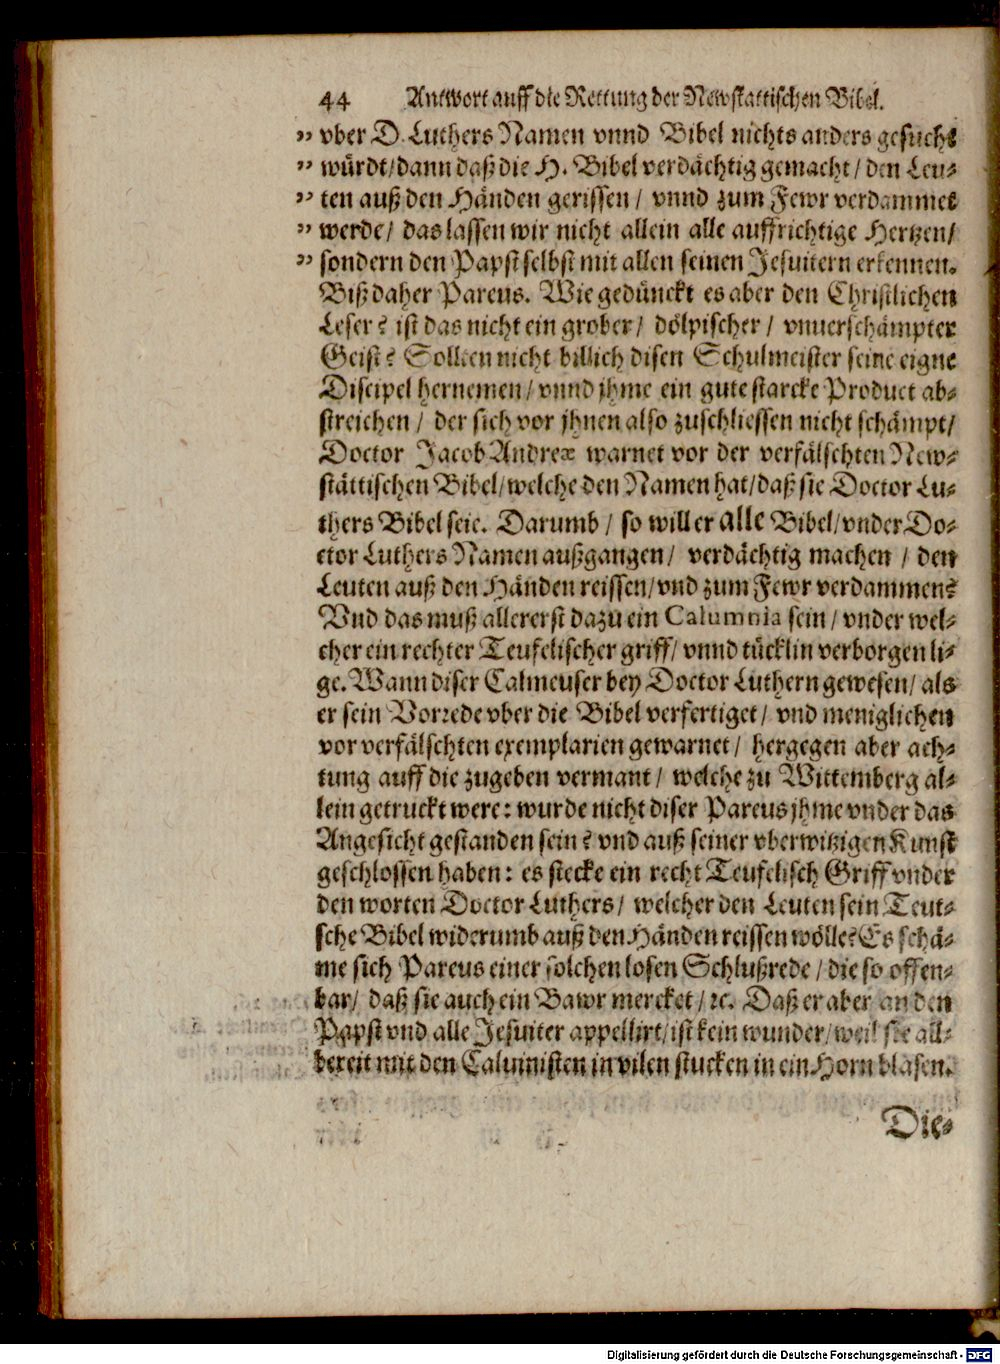 44 Antwort auff die Rettung der Newstattischen Bibel.
„ vber D. Luthers Namen vnnd Bibel nichts anders gesucht
„ würdt/dann daß die H. Bibel verdächtig gemacht/ den Leu-
„ ten auß den Händen gerissen / vnnd zum Fewr verdammet
„ werde/ das lassen wir nicht allein alle auffrichtige Hertzen/
„ sondern den Papst selbst mit allen seinen Jesuitern erkennen.
Biß daher Pareus. Wie gedünckt es aber den Christlichen
Leser? ist das nicht ein grober/ dölpischer/ vnuerschämpter
Geist? Solten nicht billich disen Schulmeister seine eigne
Discipel hernemen/ vnnd jhme ein gute starcke Product ab-
streichen / der sich vor jhnen also zuschliessen nicht schämpt/
Doctor Jacob Andreæ warnet vor der verfälschten New-
stättischen Bibel/welche den Namen hat/daß sie Doctor Lu-
thers Bibel seie. Darumb / so will er alle Bibel/vnder Do-
ctor Luthers Namen außgangen/ verdächtig machen / den
Leuten auß den Händen reissen/vnd zum Fewr verdammen?
Vnd das muß allererst dazu ein Calumnia sein/ vnder wel-
cher ein rechter Teufelischer griff/ vnnd tücklin verborgen li-
ge. Wann diser Calmeuser bey Doctor Luthern gewesen/ als
er sein Vorrede vber die Bibel verfertiget/ vnd meniglichen
vor verfälschten exemplarien gewarnet/ hergegen aber ach-
tung auff die zugeben vermant/ welche zu Wittemberg al-
lein getruckt were: wurde nicht diser Pareus jhme vnder das
Angesicht gestanden sein? vnd auß seiner vberwitzigen Kunst
geschlossen haben: es stecke ein recht Teufelisch Griff vnder
den worten Doctor Luthers/ welcher den Leuten sein Teut-
sche Bibel widerumb auß den Händen reissen wölle? Es schä-
me sich Pareus einer solchen losen Schlußrede/ die so offen-
bar/ daß sie auch ein Bawr mercket/ ꝛc. Daß er aber an den
Papst vnd alle Jesuiter appellirt/ist kein wunder/weil sie all-
bereit mit den Caluinisten in vilen stucken in ein Horn blasen.
Die-
Digitalisierung gefördert durch die Deutsche Forschungsgemeinschaft - DFG